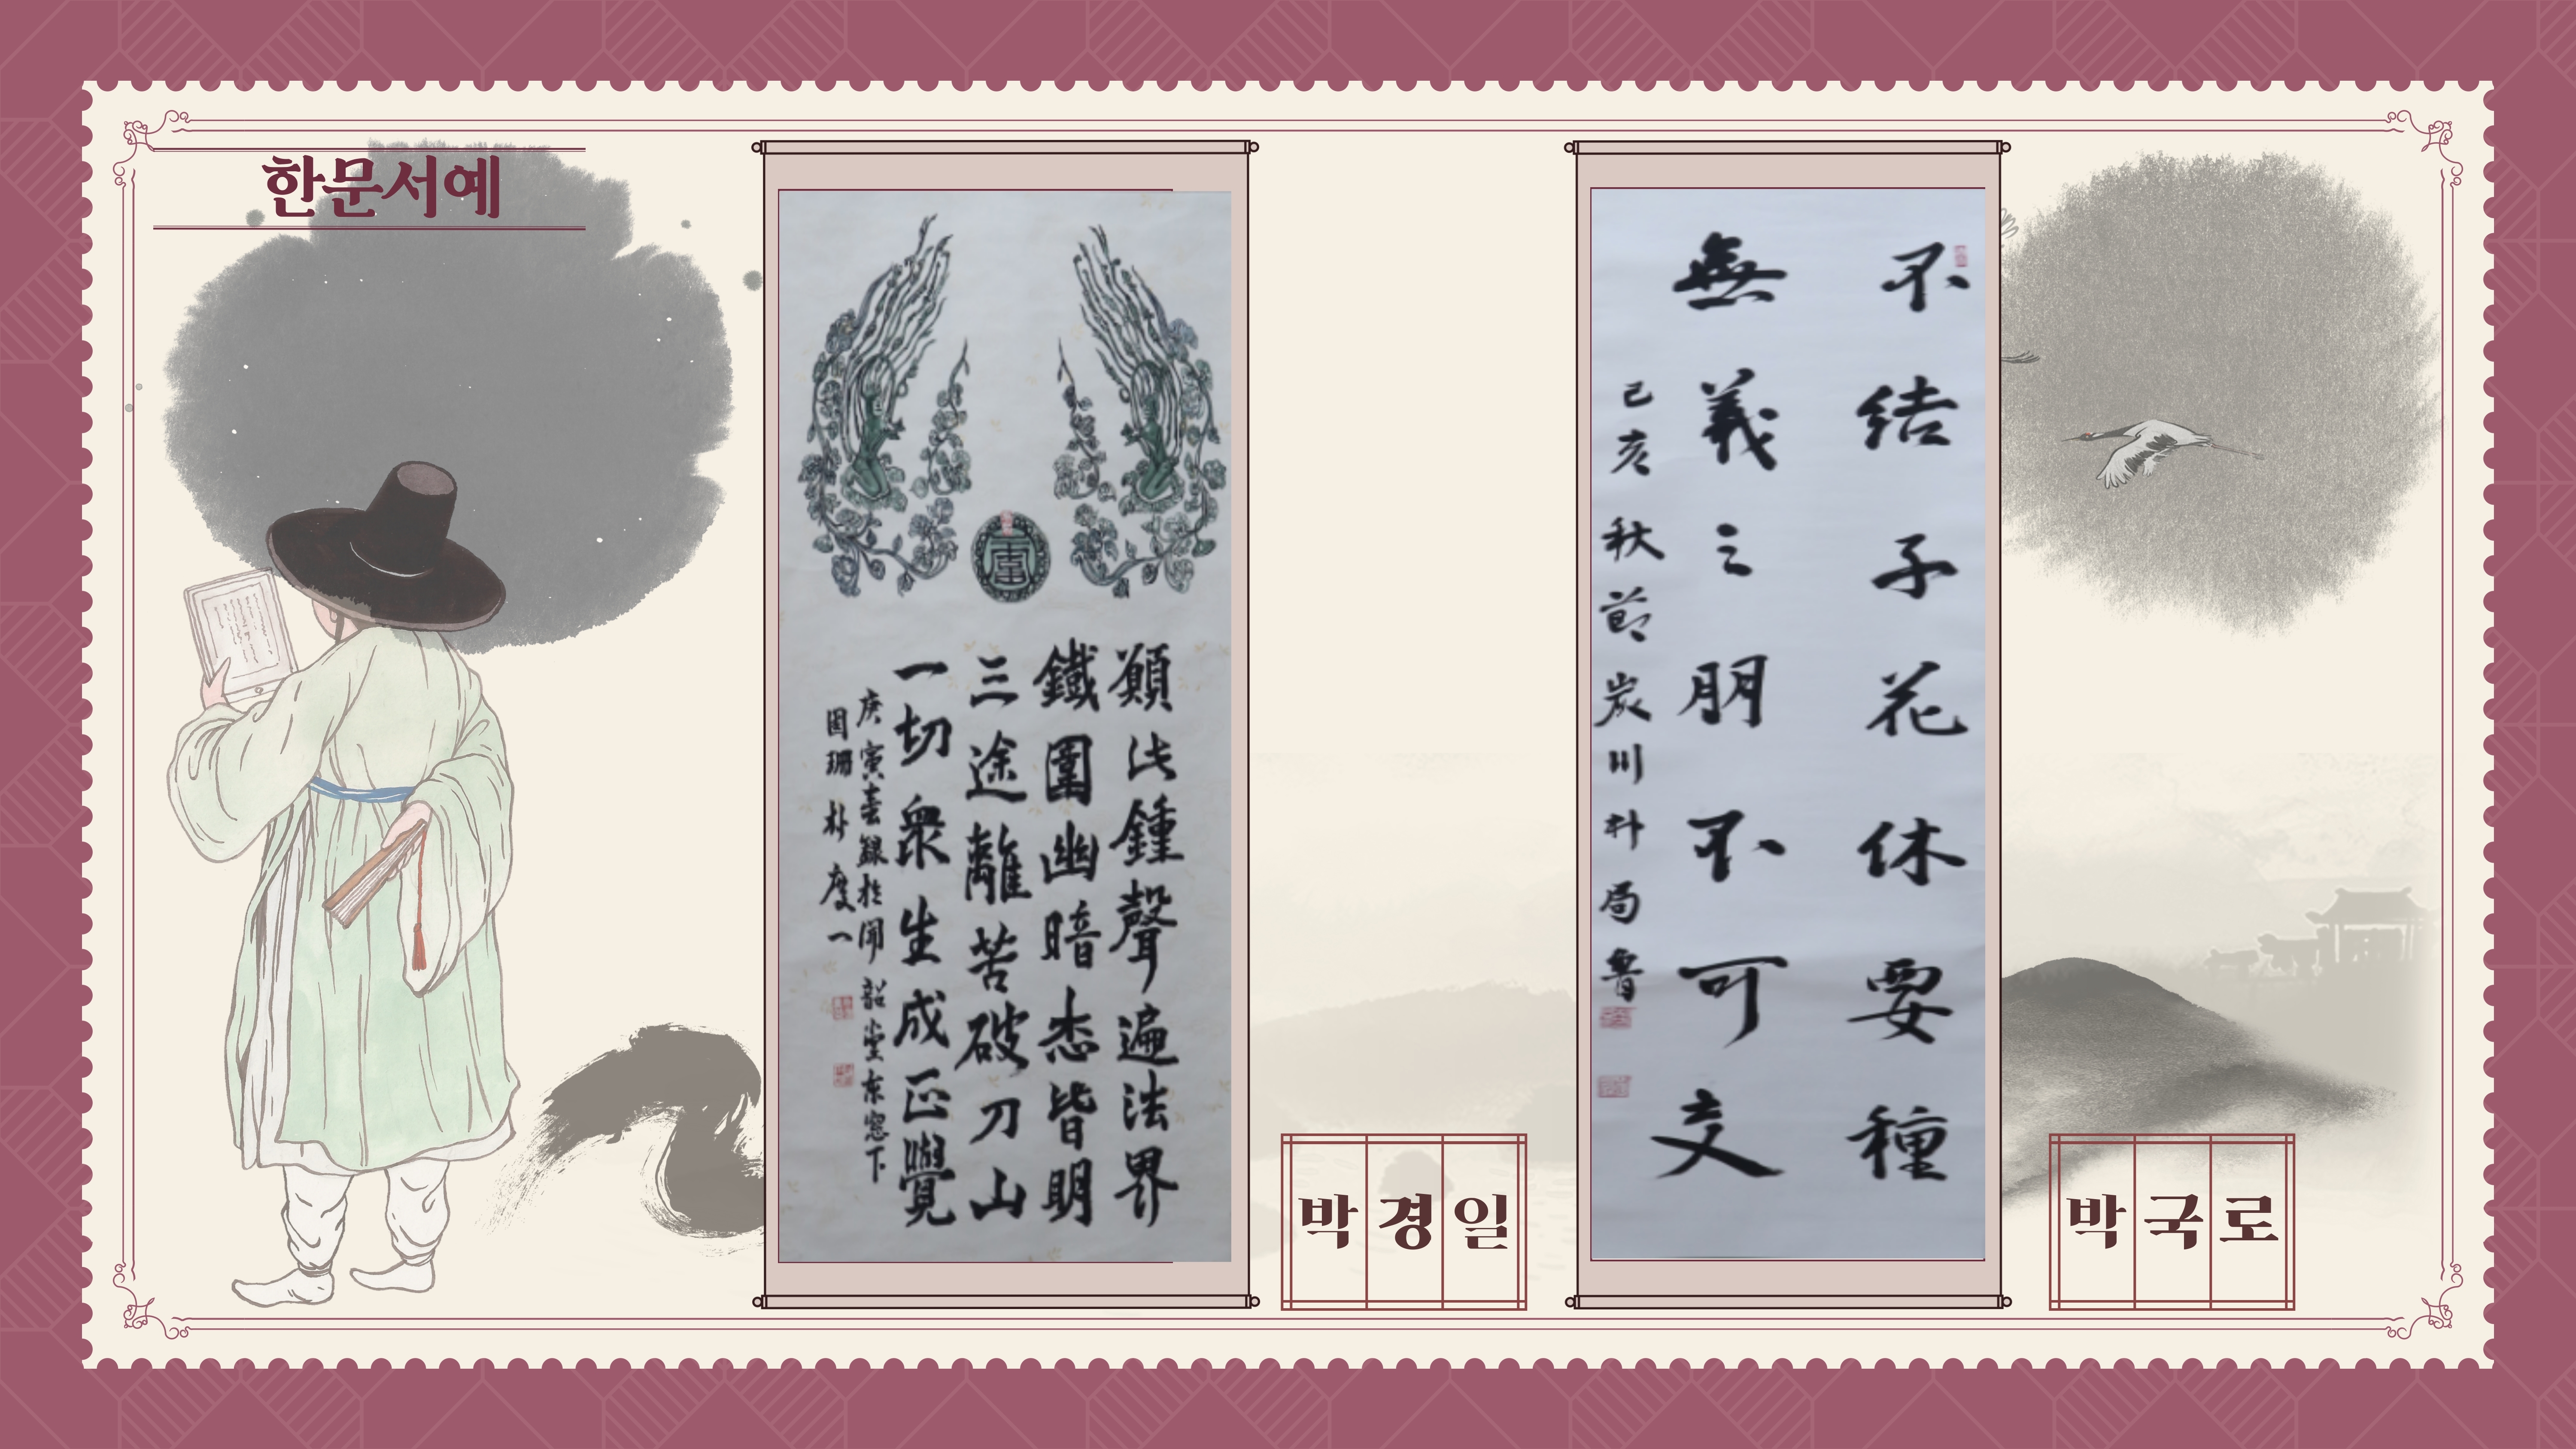 한문서예
願此鍾聲遍法界
鐵圍幽暗悉皆明
三途離苦破刀山
一切衆生成正覺
庚寅春錄於開 韶堂東窓下
박경일
不結子花休要種
無義之朋不可交
己亥 秋節 炭川 朴局魯
박국로